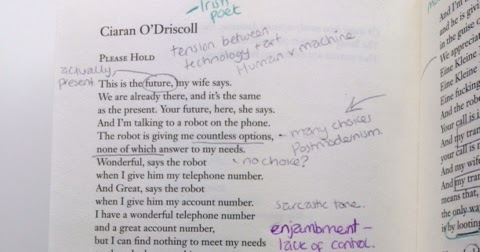 Irish
poet
Ciaran O'Driscoll
PLEASE HOLD
tension between
technology + art
Human v machine
actually
present
This is the future, my wife says.
We are already there, and it's the same
as the present. Your future, here, she says.
And I'm talking to a robot on the phone.
The robot is giving me countless options,
none of which answer to my needs.
Wonderful, says the robot
when I give him my telephone number.
And Great, says the robot
when I give him my account number.
I have a wonderful telephone number
and a great account number,
but I can find nothing to meet my needs
many choices
Postmodernism.
no choice?
Sarcastic tone.
enjambment -
lack of control.
And I'm
and he is givi
in the guise o
We appreciat
Eine Kleine
Eine Kleine
Eine fucking
And the robo
Your call is i
And my tran
your call is
And my wife
And my tran
means that,
the only wa
is by looting